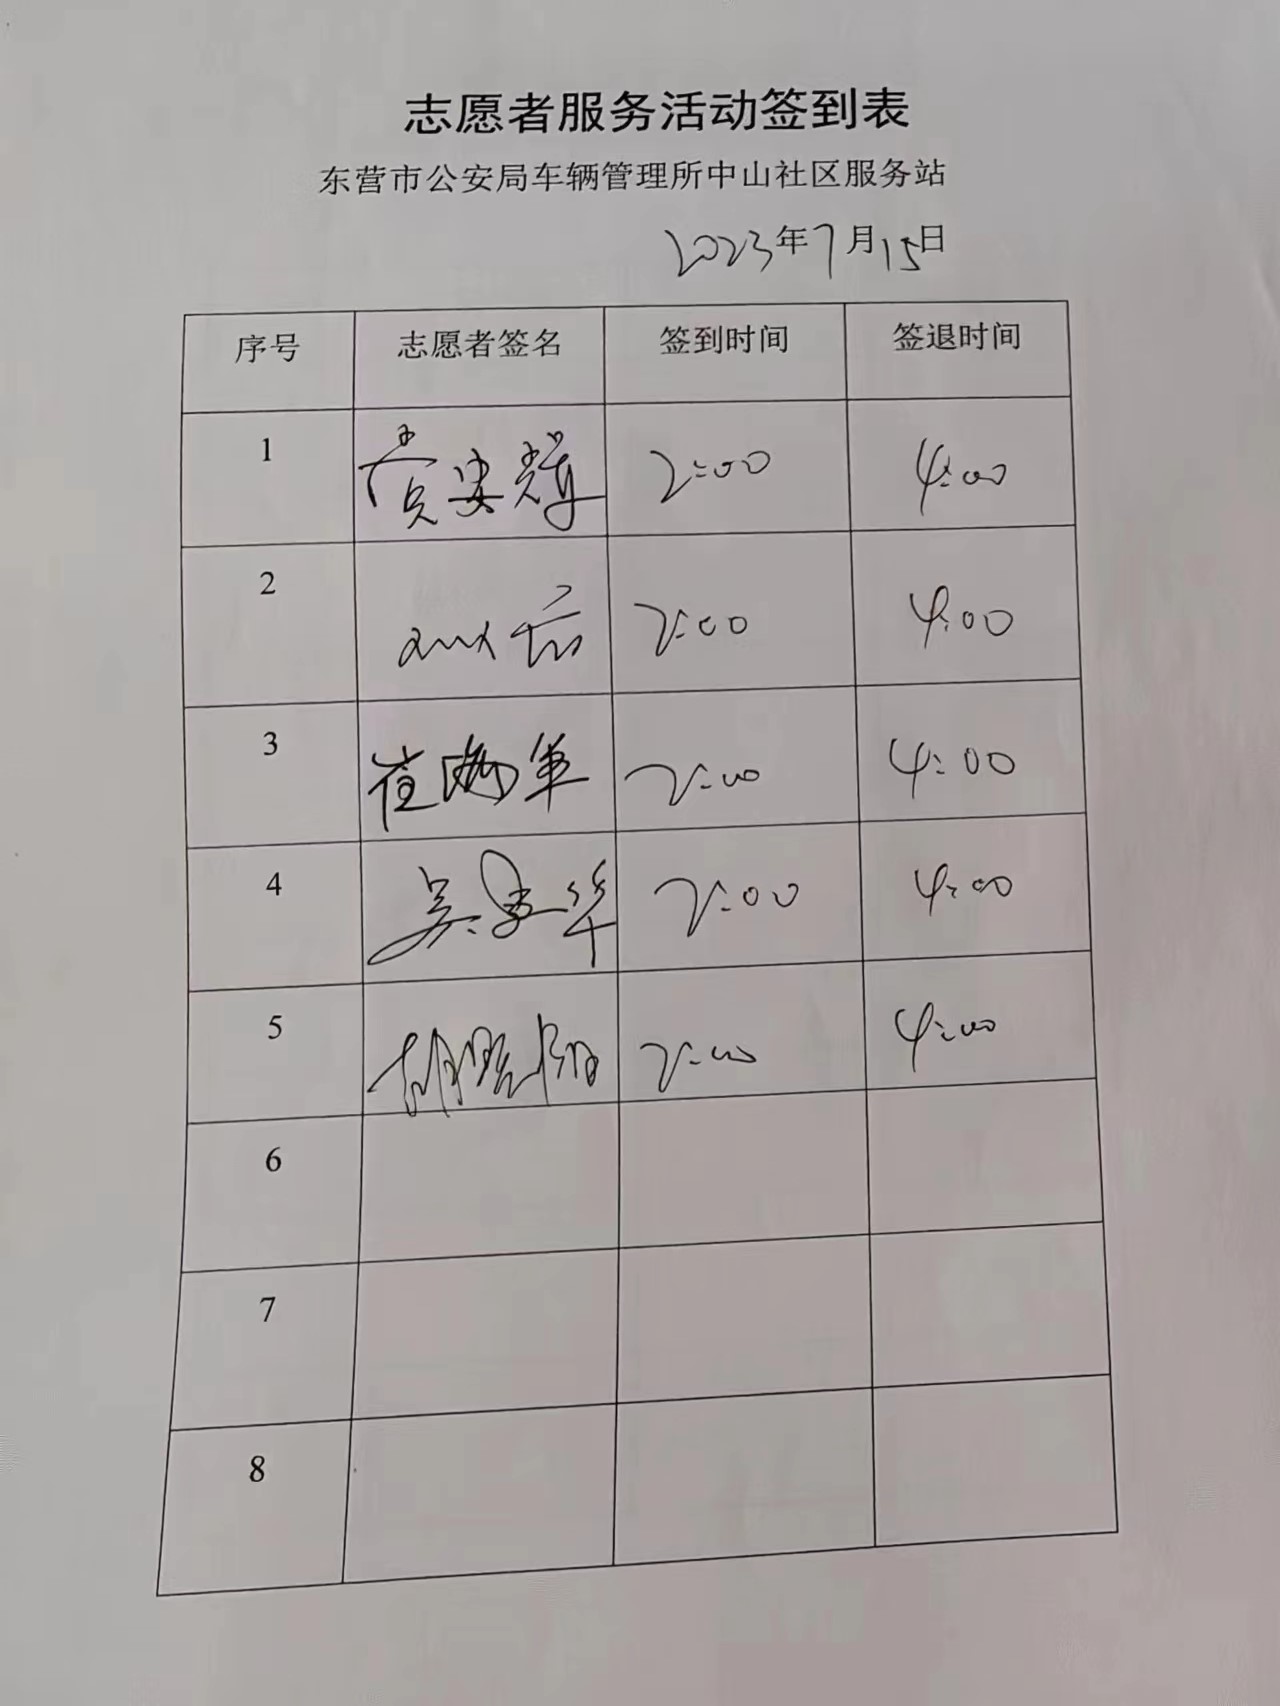 志愿者服务活动签到表
东营市公安局车辆管理所中山社区服务站
2023年7月15日
序号 志愿者签名 签到时间 签退时间
1 安辉 2:00 4:00
2 2:00 4:00
3 崔 军 2:00 4:00
4 吴 华 2:00 4:00
5 胡 阳 2:00 4:00
6
7
8